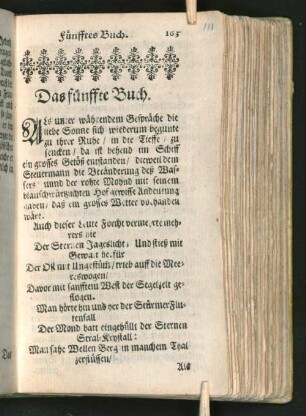 Fünfftes Buch. 163
Das fünffte Buch.
ALs unter währendem Gespräche die
liebe Sonne sich wiederum begunte
zu ihrer Ruhe / in die Tieffe / zu
sencken / da ist behend im Schiff
ein grosses Getöß entstanden / dieweil dem
Steuermann die Veränderung deß Was-
sers / unnd der rohte Mohnd mit seinem
blauschwärtzlichten Hof gewisse Anderung
gaben / daß ein grosses Wetter vorhanden
wäre.
Auch dieser Leute Forcht vermehrete
Der Sternen Jageslicht / Und stieß mit
Gewalt herfür
Der Ost mit Ungestüm / trieb auff die Mee-
reswogen /
Davor mit sanfftem West der Segelzeit ge-
flogen.
Man hörte ihn und vor der Stürmer Flu-
tenfall
Der Mond hatt eingehüllt der Sternen
Stral-Krystall:
Man sahe Wellen Berg in manchem Thal
zerflüssen /
Als